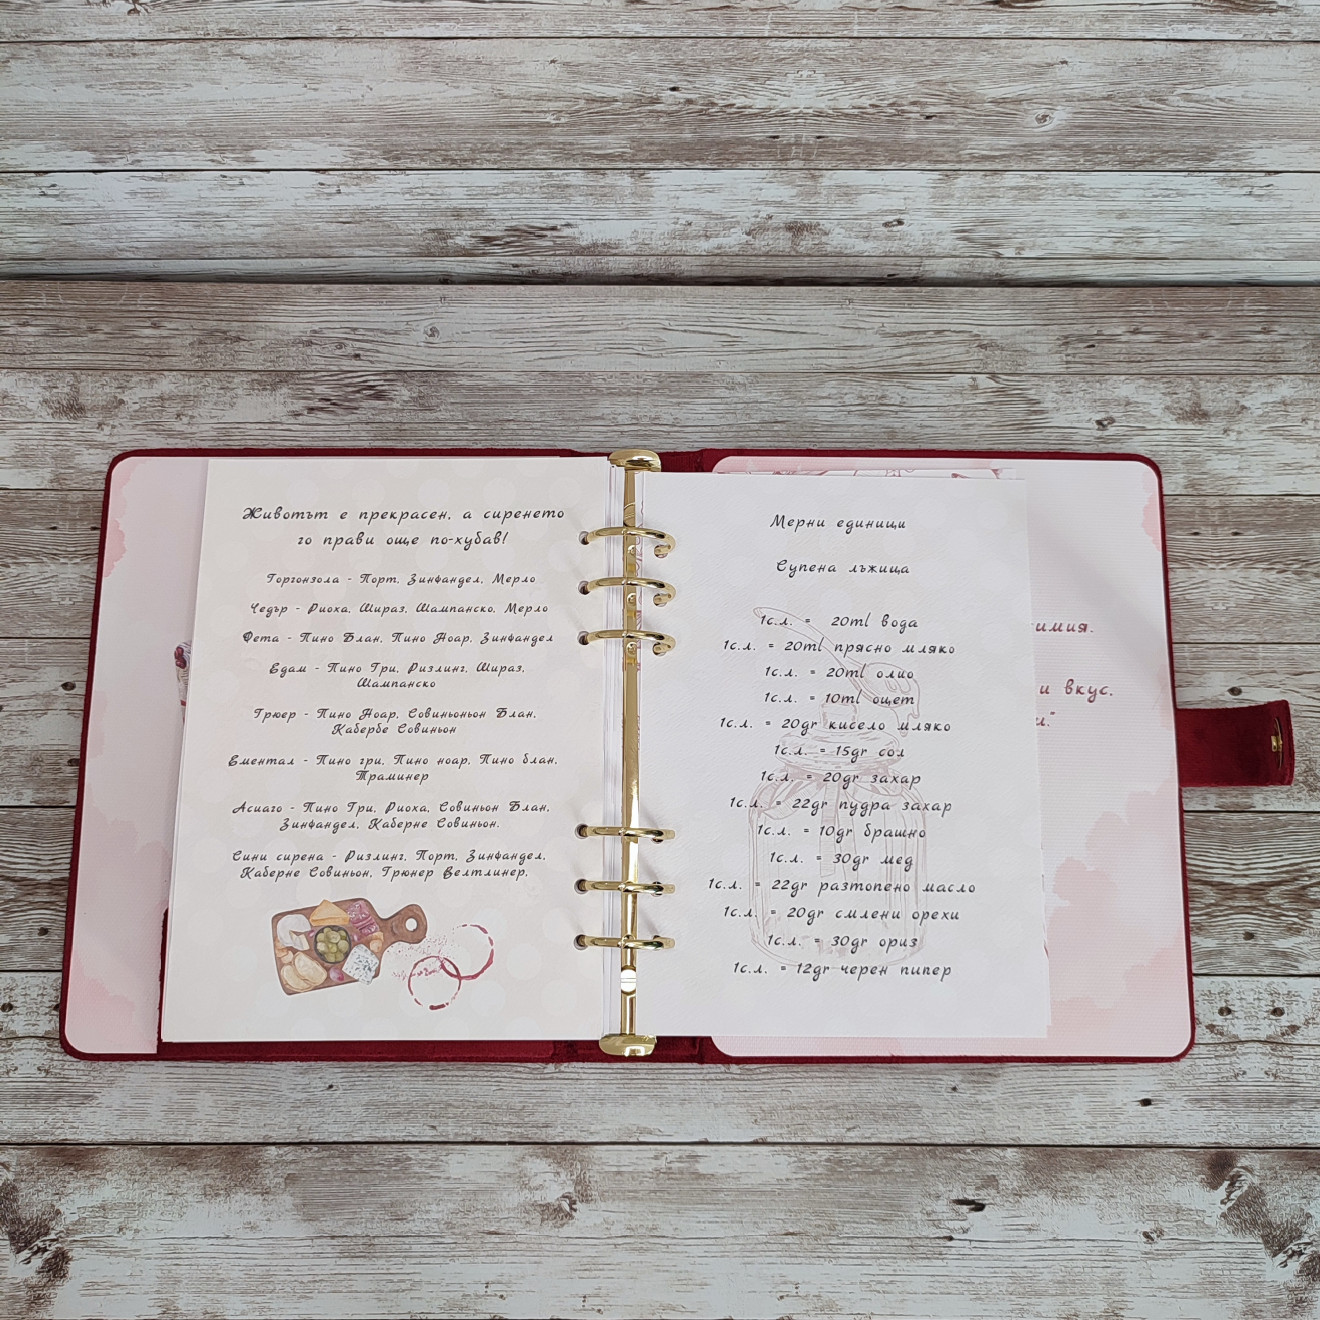 Животът е прекрасен, а сиренето
го прави още по-хубав!
Горгонзола - Порт, Зинфандел, Мерло
Чедър - Риоха, Шираз, Шампанско, Мерло
Фета - Пино Блан, Пино Ноар, Зинфандел
Едам - Пино Гри, Ризлинг, Шираз,
Шампанско
Грюер - Пино Ноар, Совиньоньон Блан,
Кабербе Совиньон
Ементал - Пино гри, Пино ноар, Пино блан,
Траминер
Асиаго - Пино Гри, Риоха, Совиньон Блан,
Зинфандел, Каберне Совиньон.
Сини сирена - Ризлинг, Порт, Зинфандел,
Каберне Совиньон, Грюнер Велтлинер,
Мерни единици
Супена лъжица
1с.л. = 20ml вода
1с.л. = 20ml прясно мляко
1с.л. = 20ml олио
1с.л. = 10ml оцет
1с.л. = 20gr кисело мляко
1с.л. = 15gr сол
1с.л. = 20gr захар
1с.л. = 22gr пудра захар
1с.л. = 10gr брашно
1с.л. = 30gr мед
1с.л. = 22gr разтопено масло
1с.л. = 20gr смлени орехи
1с.л. = 30gr ориз
1с.л. = 12gr черен пипер
и вкус.